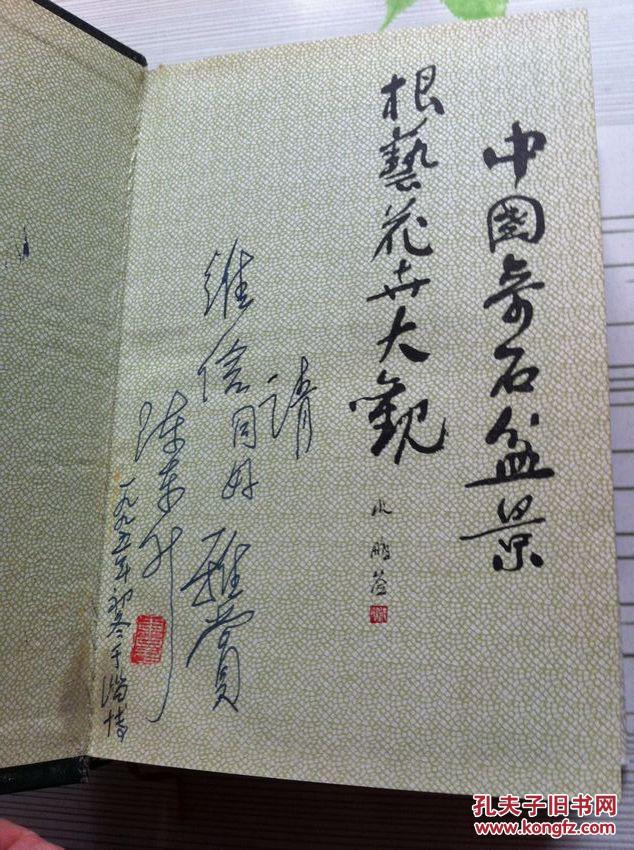 中國奇石盆景
根藝花卉大觀
请
维信同好
雅賞
陈东升
一九九五年初冬于淄博
孔夫子旧书网
www.kongfz.com